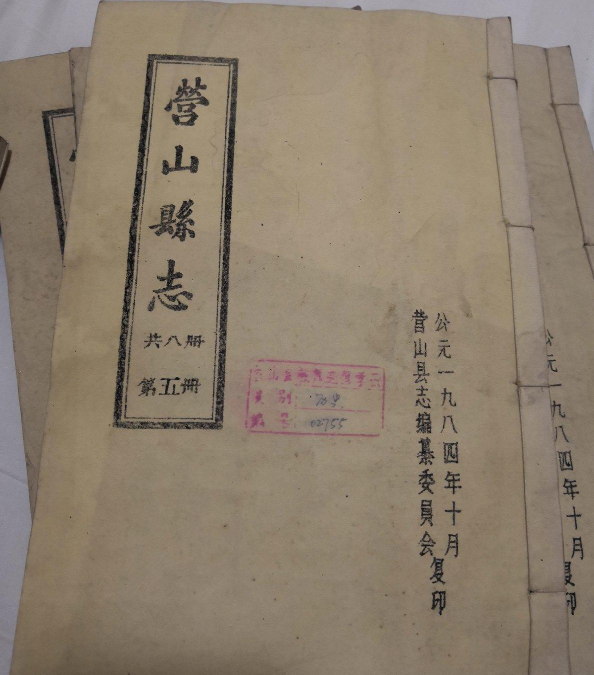 營山縣志
共八册
第五册
公元一九八四年十月
营山县志编纂委員会复印
别
号 02755
公元一九八四年十月
复印